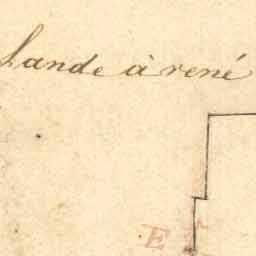 Lande à rené
E